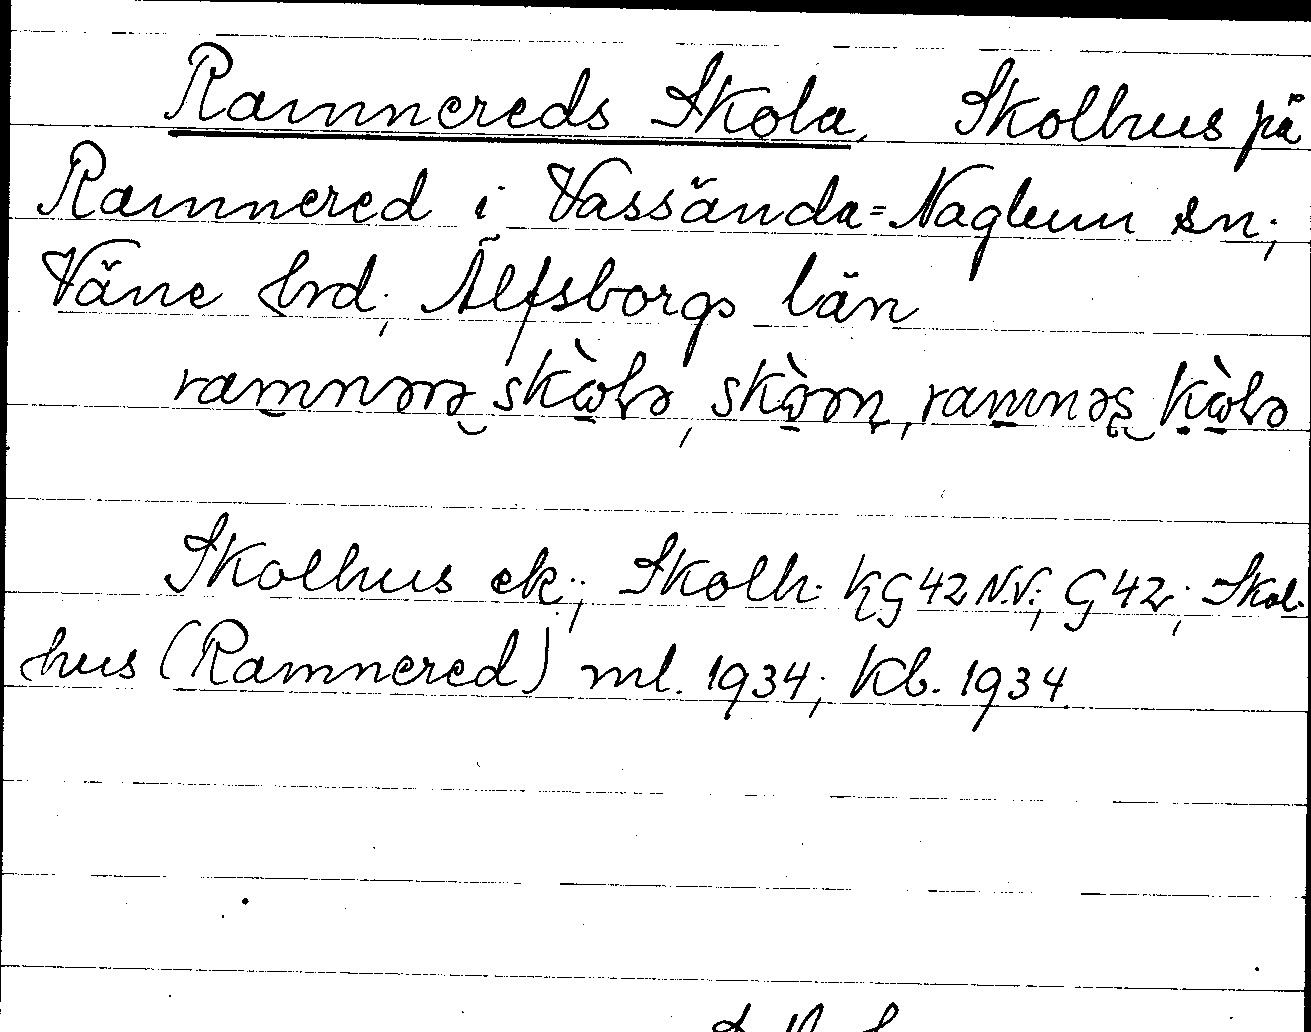 Ramnereds Skola, Skolhus på
Ramnered i Vassända=Naglum sn;
Väne hrd; Älfsborgs län
ramnərə skὼlə, skὼən, ramnəs kὼlə
Skolhus ek.; Skolh. KG 42 N.V.; G 42; Skol-
hus (Ramnered) ml. 1934; Kb. 1934.